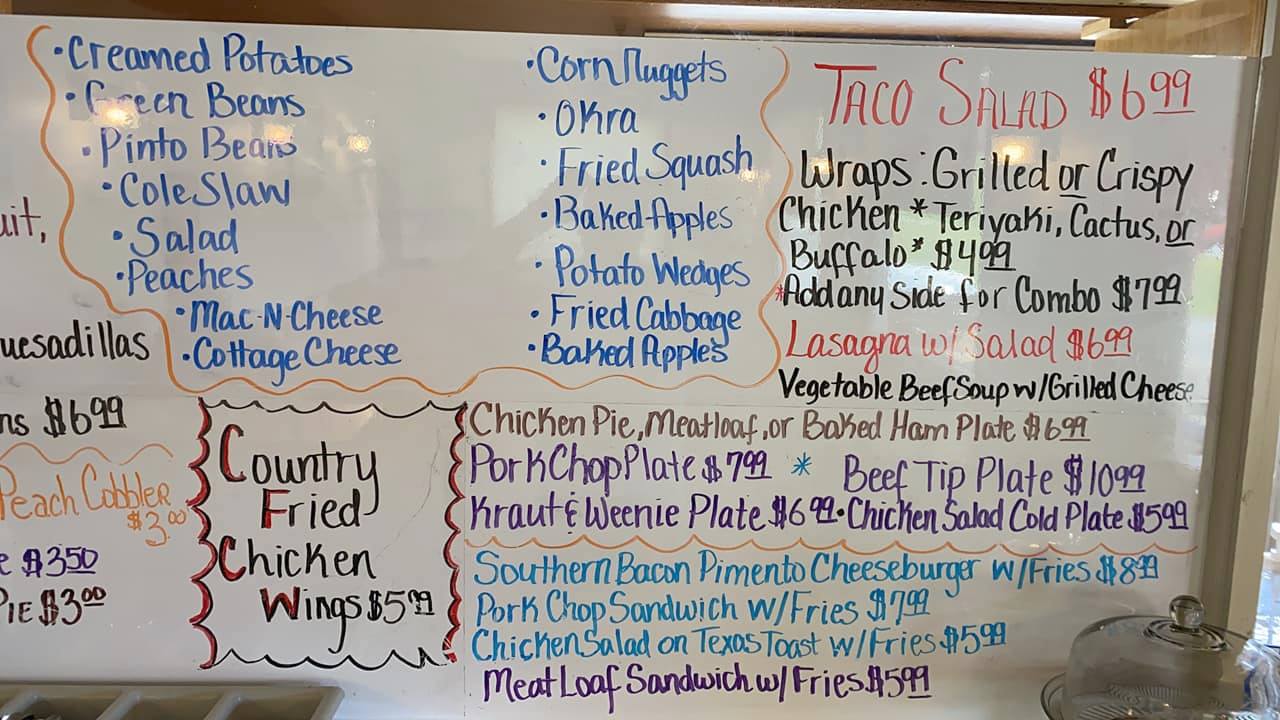 • Creamed Potatoes
• Green Beans
• Pinto Beans
• Cole Slaw
• Salad
• Peaches
• Mac-N-Cheese
• Cottage Cheese
• Corn Nuggets
• Okra
• Fried Squash
• Baked Apples
• Potato Wedges
• Fried Cabbage
• Baked Apples
Taco Salad $6.99
Wraps: Grilled or Crispy
Chicken * Teriyaki, Cactus, or
Buffalo * $4.99
*Add any Side for Combo $7.99
Lasagna w/ Salad $6.99
Vegetable Beef Soup w/Grilled Cheese
uit,
uesadillas
ns $6.99
Peach Cobbler
$3.00
e $3.50
Pie $3.00
Country
Fried
Chicken
Wings $5.99
Chicken Pie, Meatloaf, or Baked Ham Plate $6.99
Pork Chop Plate $7.99 * Beef Tip Plate $10.99
Kraut & Weenie Plate $6.99 • Chicken Salad Cold Plate $5.99
Southern Bacon Pimento Cheeseburger w/Fries $8.99
Pork Chop Sandwich w/Fries $7.99
Chicken Salad on Texas Toast w/Fries $5.99
Meat Loaf Sandwich w/ Fries $5.99